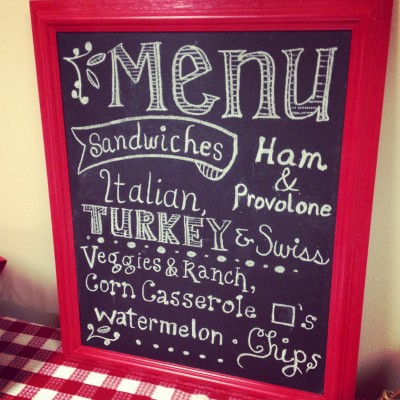 Menu
Sandwiches
Ham
&
Provolone
Italian,
TURKEY & Swiss
Veggies & Ranch,
Corn Casserole □'s
watermelon · Chips